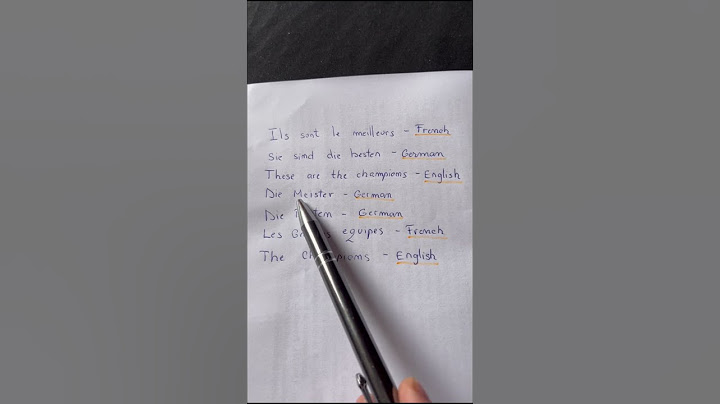 Ils sont le meilleurs - French
Sie sind die besten - German
These are the champions - English
Die Meister - German
Die - German
Les equipes - French
The - English